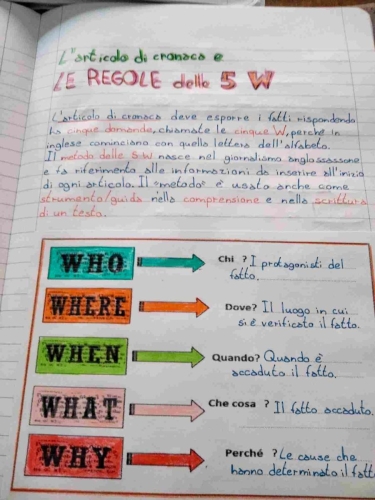 L'articolo di cronaca e
LE REGOLE delle 5 W
L'articolo di cronaca deve esporre i fatti rispondendo
ha cinque domande, chiamate le cinque W, perché in
inglese cominciano con quella lettera dell'alfabeto.
Il metodo delle 5 W nasce nel giornalismo anglosassone
e fa riferimento alle informazioni da inserire all'inizio
di ogni articolo. Il "metodo" è usato anche come
strumento/guida nella comprensione e nella scrittura
di un testo.
WHO Chi ? I protagonisti del
fatto.
WHERE Dove? Il luogo in cui
si è verificato il fatto.
WHEN Quando? Quando è
accaduto il fatto.
WHAT Che cosa ? Il fatto accaduto.
WHY Perché ? Le cause che
hanno determinato il fatto